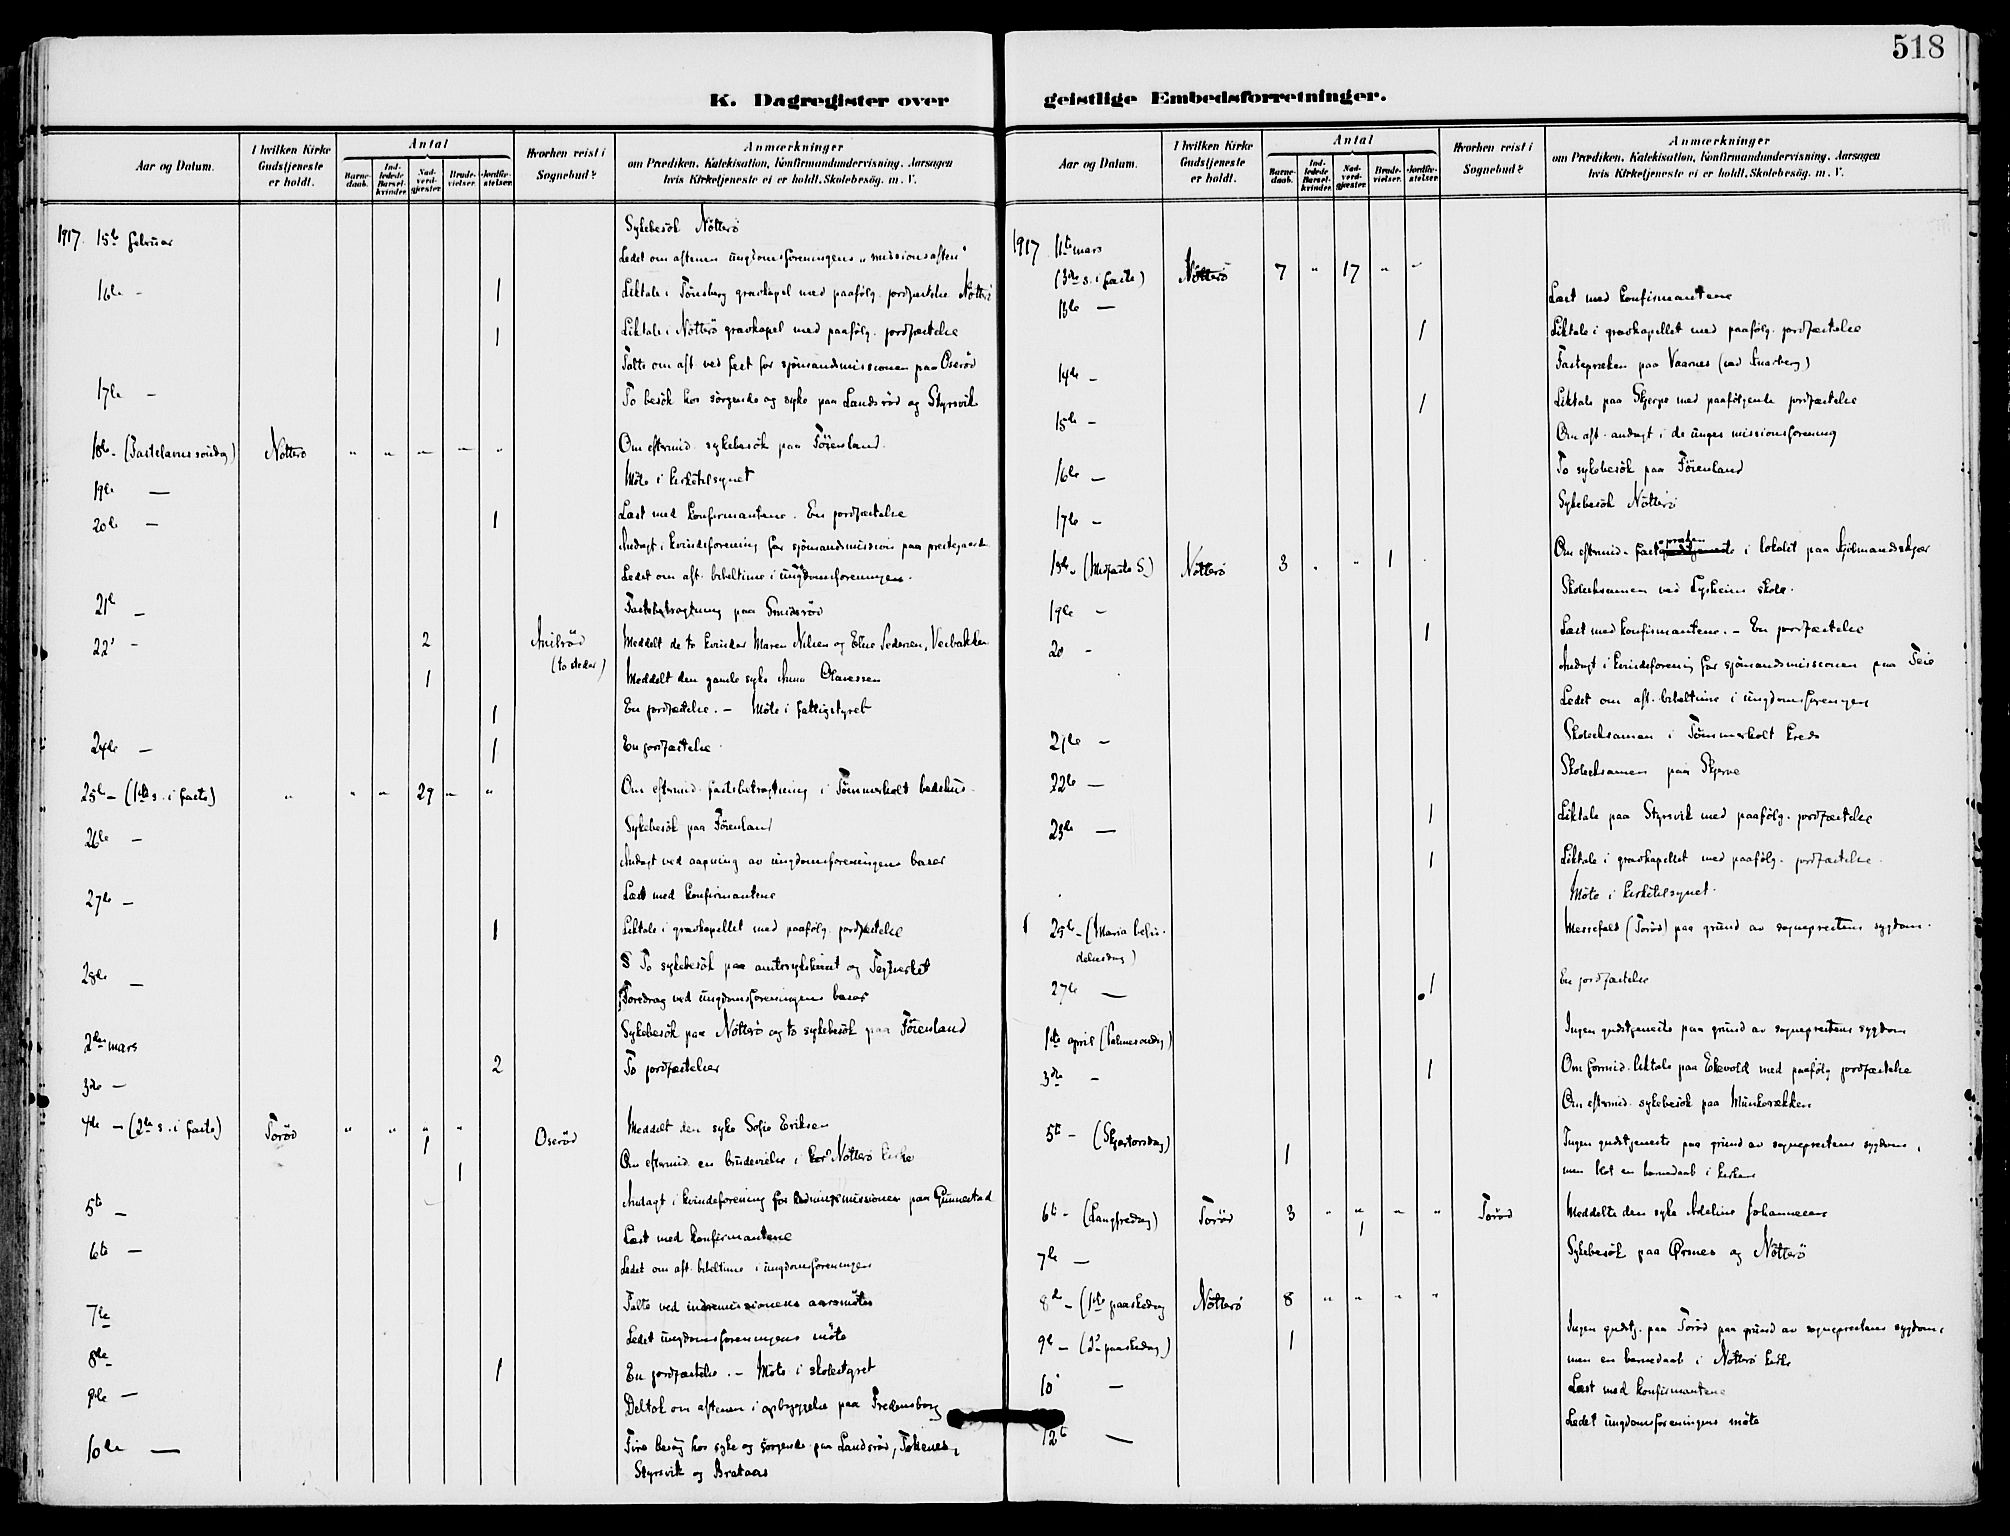 518
K. Dagregister over geistlige Embedsforretninger.
Aar og Datum.
I hvilken Kirke Gudstjeneste er holdt.
Antal
Barne-daab.
Ind-ledede Barsel-kvinder.
Nad-verd-gjester.
Brude-vielser.
Jordfæ-stelser.
Hvorhen reist i Sognebud?
Anmærkninger
om Prædiken, Katekisation, Konfirmandundervisning, Aarsagen
hvis Kirketjeneste ei er holdt, Skolebesøg. m. V.
1917. 15de februar Sykebesök Nötterö
Ledet om aftenen ungdomsforeningens "missionsaften"
16de - 1 Liktale i Tönsberg gravkapel med paafölg. jordfæstelse Nötterö
1 Liktale i Nötterö gravkapel med paafölg. jordfæstelse
Talte om aft. ved fest for sjömandsmissionen paa Oseröd
17de - To besök hos sörgende og syke paa Landsröd og Styrsvik
18de - (Fastelavnssöndag) Nötterö " " " " " Om eftermid. sykebesök paa Föienland.
19de - Möte i kirketilsynet
20de - 1 Læst med konfirmantene. En jordfæstelse
Andagt i kvindeforening for sjömandsmission paa prestegaarden
Ledet om aft. bibeltime i ungdomsforeningen.
21de - Fastebetragtning paa Smidsröd
22' - 2 (to steder) Meddelt de to kvinder Maren Nilsen og Pedersen, Veibakken
1 Meddelt den gamle syke Anna Olavessen
1 En jordfæstelse. - Möte i fattigstyret
24de - 1 En jordfæstelse.
25de - (1ste s. i faste) " " " 29 " " Om eftermid. fastebetragtning i Tömmerholt bedehus.
26de - Sykebesök paa Föienland
Andagt ved aapning av ungdomsforeningens basar
27de - Læst med konfirmantene
1 Liktale i gravkapellet med paafölg. jordfæstelse
28de - To sykebesök paa amtssykehuset og Teglverket
Foredrag ved ungdomsforeningens basar
2den mars Sykebesök paa Nötterö og to sykebesök paa Föienland
3de - 2 To jordfæstelser
4de - (2de s. i faste) Toröd " " " " 1 Oseröd Meddelt den syke Sofie Eriksen
1 Om eftermid. en brudevielse i Nötterö kirke
5te - Andagt i kvindeforening for indremissionen paa Gunnestad
6te - Læst med konfirmantene
Ledet om aft. bibeltime i ungdomsforeningen
7de Talte ved indremissionens aarsmöte
Ledet ungdomsforeningens möte
8de 1 En jordfæstelse. - Möte i skolestyret
9de - Deltok om aftenen i opbyggelse paa Fredensborg
10de - Fire besög hos syke og sörgende paa Landsröd, Tokenes,
Styrsvik og Brataas
K. Dagregister over geistlige Embedsforretninger.
Aar og Datum.
I hvilken Kirke Gudstjeneste er holdt.
Antal
Barne-daab.
Ind-ledede Barsel-kvinder.
Nad-verd-gjester.
Brude-vielser.
Jordfæ-stelser.
Hvorhen reist i Sognebud?
Anmærkninger
om Prædiken, Katekisation, Konfirmandundervisning, Aarsagen
hvis Kirketjeneste ei er holdt, Skolebesøg. m. V.
1917 11te mars
(3die s. i faste) Nötterö 7 " 17 " "
13de - Læst med konfirmantene
1 Liktale i gravkapellet med paafölg. jordfæstelse
14de - Fastepræken paa Vaarnes (ved Snarberg)
15de - 1 Liktale paa Skjerpe med paafölgende jordfæstelse
Om aft. andagt i de unges missionsforening
16de - To sykebesök paa Föienland
17de - Sykebesök Nötterö
18de - (Midfaste S.) Nötterö 3 " " 1 Om eftermid. fastepræken i lokalet paa Kjölmandskjær
19de - Skoleeksamen ved Lysheim skole.
20 - 1 Læst med konfirmantene. - En jordfæstelse
Andagt i kvindeforening for sjömandsmissionen paa Teie
Ledet om aft. bibeltime i ungdomsforeningen
21de - Skoleeksamen i Tömmerholt kreds
22de - Skoleeksamen paa Skjerve
23de - 1 Liktale paa Styrsvik med paafölg. jordfæstelse
1 Liktale i gravkapellet med paafölg. jordfæstelse.
Möte i kirketilsynet.
25de - (Maria bebu-
delsesdag) Messefald (Toröd) paa grund av sogneprestens sygdom.
27de - 1 En jordfæstelse
1ste april (Palmesöndag) Ingen gudstjeneste paa grund av sogneprestens sygdom
3de - 1 Om formid. liktale paa Ekevold med paafölg jordfæstelse
Om eftermid. sykebesök paa Munkerækken
5te - (Skjærtorsdag) 1 Ingen gudstjeneste paa grund av sogneprestens sygdom,
men blot en barnedaab i kirken
6te - (Langfredag) Toröd 3 " " " " 1 Toröd Meddelte den syke Adeline Johannessen
7de - Sykebesök paa Örsnes og Nötterö
8de - (1ste paaskedag Nötterö 8 " " " "
9de - (2' paaskedag) 1 Ingen gudstj. paa Toröd paa grund av sogneprestens sygdom,
men en barnedaab i Nötterö kirke
10' - Læst med konfirmantene
12te - Ledet ungdomsforeningens möte